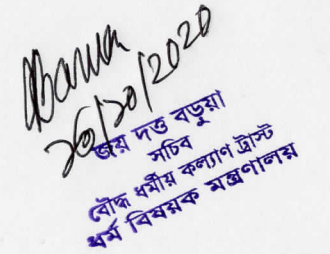 Barua
২৬/১০/২০২০
জয় দত্ত বড়ুয়া
সচিব
বৌদ্ধ ধর্মীয় কল্যাণ ট্রাস্ট
ধর্ম বিষয়ক মন্ত্রণালয়